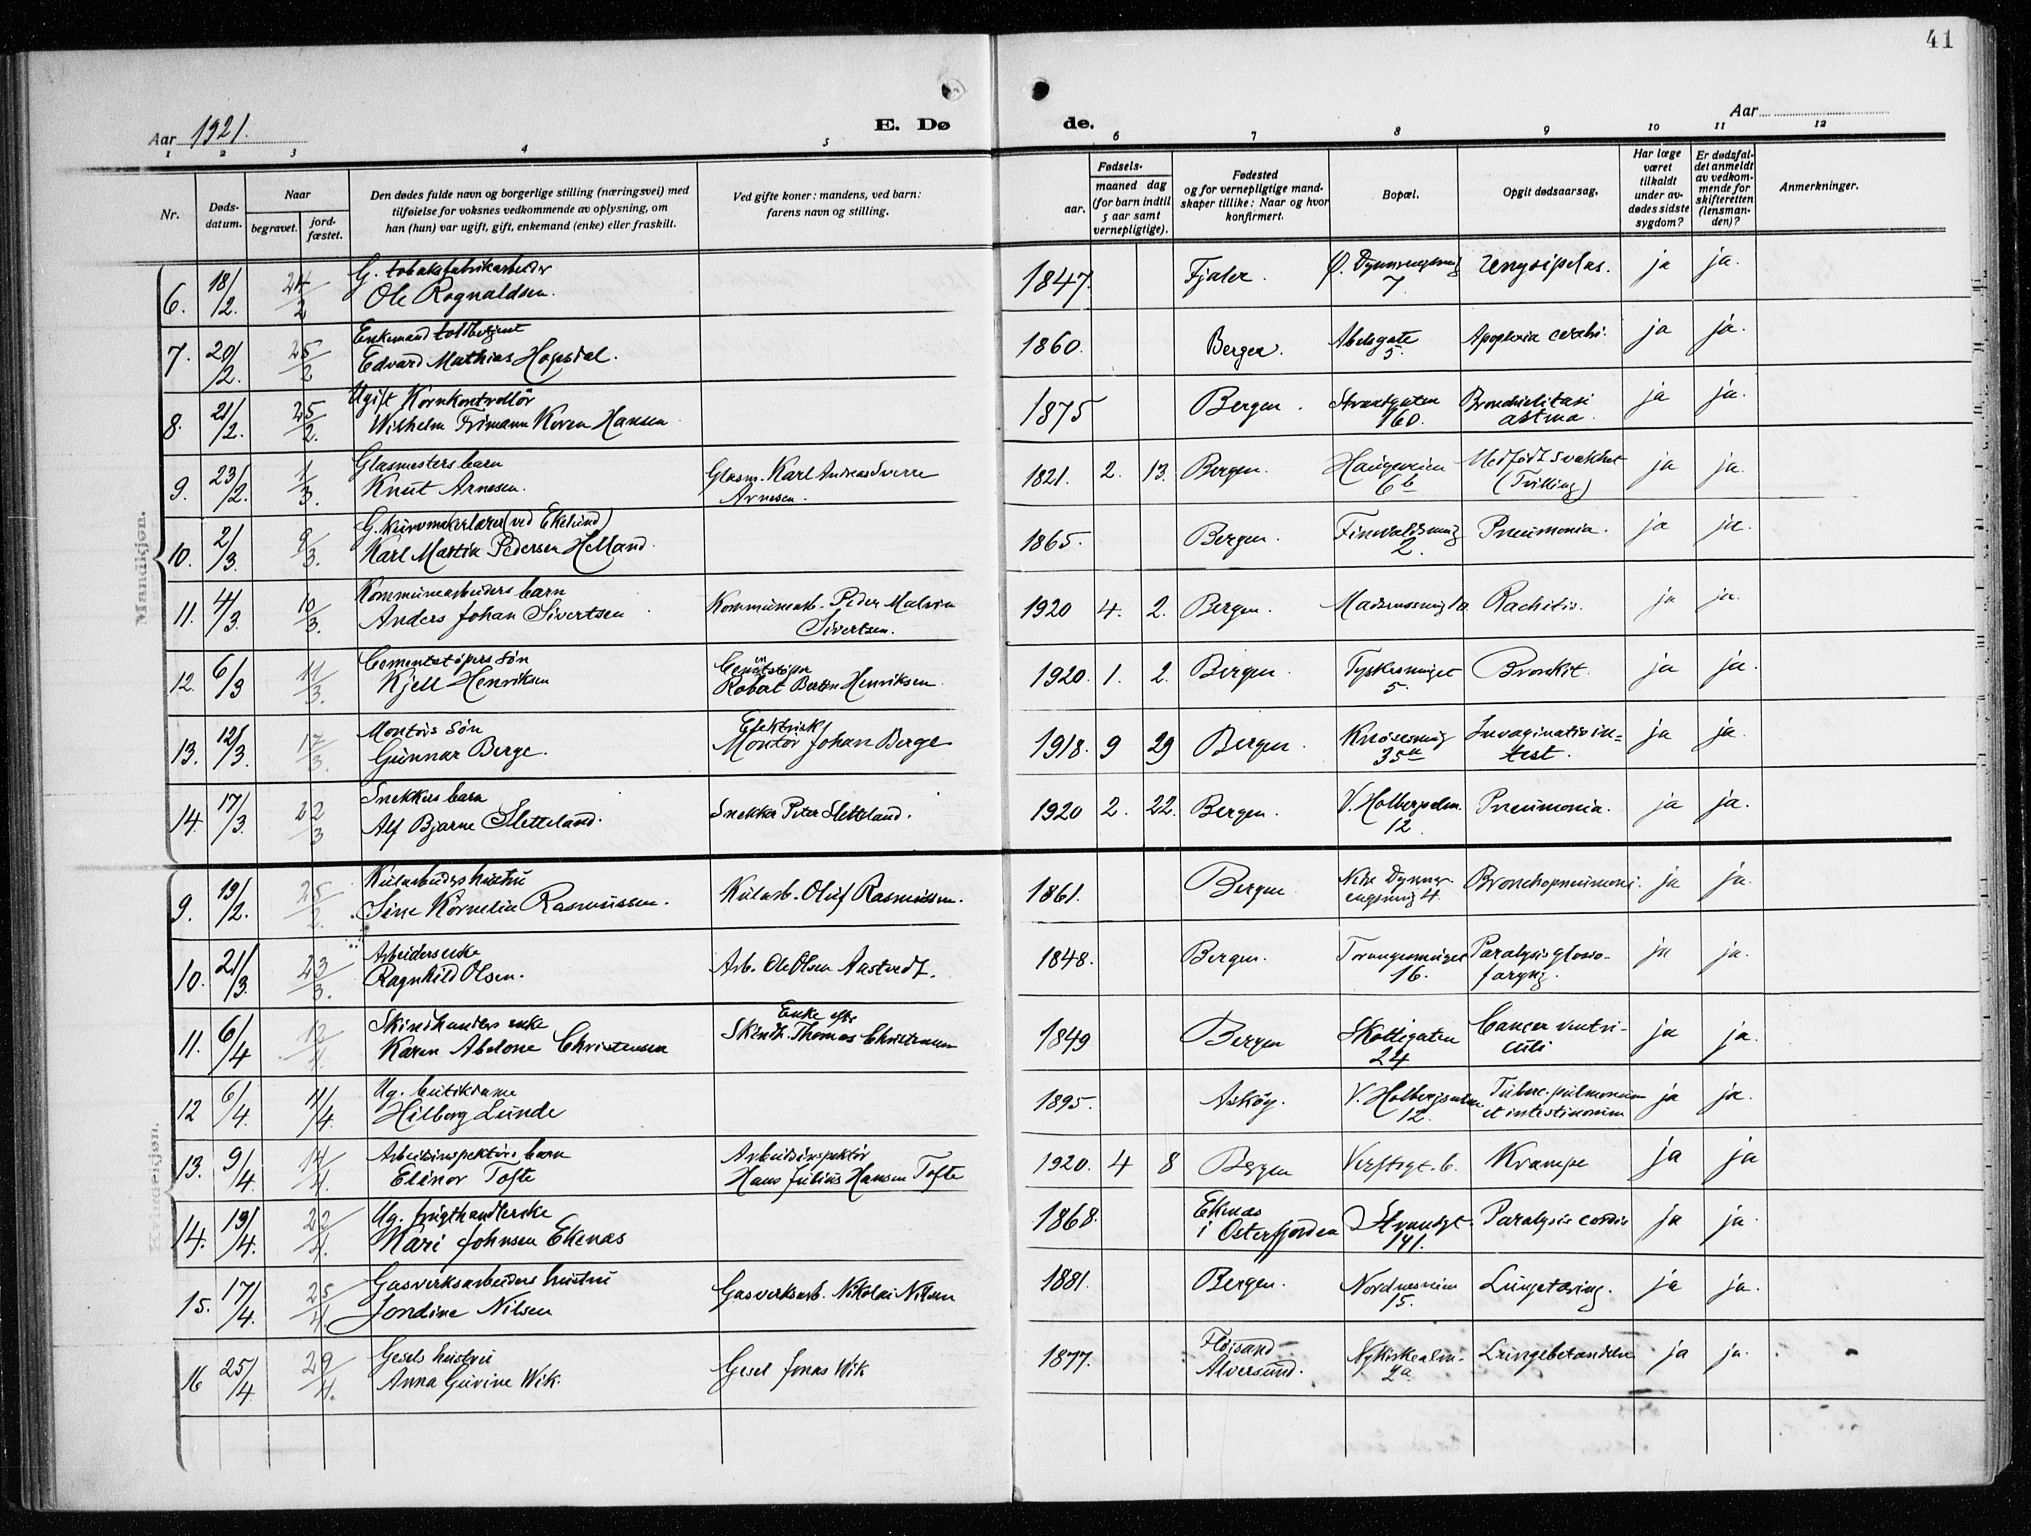 41
Aar 1921.
E. Døde.
Aar
1 2 3 4 5 6 7 8 9 10 11 12
Nr.
Dødsdatum.
Naar
begravet.
jordfæstet.
Den dødes fulde navn og borgerlige stilling (næringsvei) med
tilføielse for voksnes vedkommende av oplysning, om
han (hun) var ugift, gift, enkemand (enke) eller fraskilt.
Ved gifte koner: mandens, ved barn:
farens navn og stilling.
Fødsels-
aar.
maaned dag
(for barn indtil
5 aar samt
vernepligtige).
Fødested
og for vernepligtige mandskaper tillike: Naar og hvor
konfirmert.
Bopæl.
Opgit dødsaarsag.
Har læge
været
tilkaldt
under avdødes sidste
sygdom?
Er dødsfaldet anmeldt
av vedkommende for
skifteretten
(lensmanden)?
Anmerkninger.
Mandkjøn.
6. 18/2. 24/2 G. tobaksfabrikarbeider
Ole Rognaldsen. 1847. Fjaler. 7. ja ja.
7. 20/2. 25/2 Enkemand toldbetjent
Edvard Mathias Hopsdal. 1860. Bergen. Abelsgate
5. Apoplexia cerebri. ja ja.
8. 21/2. 25/2. Ugift Kornkontrollör
Wilhelm Frimann Koren Hansen 1875 Bergen. Strandgaten
160. astma. ja ja.
9. 23/2. 1/3. Glasmesters barn
Knut Arnesen. Glasm. Karl Andreas Sverre
Arnesen. 1821. 2. 13. Bergen. Haugeveien
6b Medfödt svakhet
(Tvilling) ja ja.
10. 2/3. 9/3. G. (ved Ekelund)
Karl Martin Pedersen Helland. 1865. Bergen. 2. Pneumonia. ja ja.
11. 4/3. 10/3. Kommunearbeiders barn
Anders Johan Sivertsen Kommunearb. Peder Malvin
Sivertsen. 1920 4. 2. Bergen. Rachitis. ja ja.
12. 6/3 11/3. Cementstöpers sön
Kjell Henriksen Cementstöper
Robert Berton Henriksen. 1920. 1. 2. Bergen. Tyskesmuget
5. Bronkit. ja ja.
13. 12/3. 17/3. Montörs sön
Gunnar Berge. Elektrisk
Montör Johan Berge 1918. 9 29 Bergen. Knösesmug
35a Invaginatio in=
test. ja ja.
14. 17/3. 22/3 Snekkers barn
Alf Bjarne Sletteland. Snekker Peter Sletteland. 1920 2. 22. Bergen. V. Holbergsalm.
12. Pneumonia. ja ja.
Kvindekjøn.
9. 19/2. 25/2. Kularbeiders hustru
Sine Kornelia Rasmussen. Kularb. Oluf Rasmussen. 1861. Bergen. Nedre Dynnersengsmug 4. Bronchopneumoni. ja ja.
10. 21/3. 23/3. Arbeiders enke
Ragnhild Olsen. Arb. Ole Olsen Aastvedt. 1848. Bergen. Torvagesmuget
16. Paralysis glossofaryng. ja ja.
11. 6/4 12/4. Skindhandlers enke
Karen Abelone Christensen Enke efter
Skindh. Thomas Christensen 1849 Bergen Skottegaten
24 Cancer ventriculi ja ja.
12 6/4. 11/4. Ug. butikdame
Hilborg Lunde 1895. Asköy. V. Holbergsalm.
12. Tuberc. pulmonum
et intestinorum ja ja.
13. 9/4. 14/4. Arbeidsinspektörs barn
Elinor Tofte Arbeidsinspektör
Hans Julius Hansen Tofte 1920. 4 8 Bergen Verftsgt. 6. Krampe ja ja
14. 19/4. 22/4. Ug. frugthandlerske
Kari Johnsen Ekenas 1868. Ekenas
i Osterfjorden Strandgt.
141. Paralysis cordis ja ja.
15. 17/4. 25/4. Gasverksarbeiders hustru
Jondine Nilsen Gasverksarb. Nikolai Nilsen 1881. Bergen. Nordnesveien
15. Lungetæring. ja ja.
16 25/4 29/4. Gesels hustru
Anna Gurine Wik. Gesel Jonas Wik 1877. Flöisand
Alversund. Nykirkealm.
2a. Lungebetændelse ja ja.